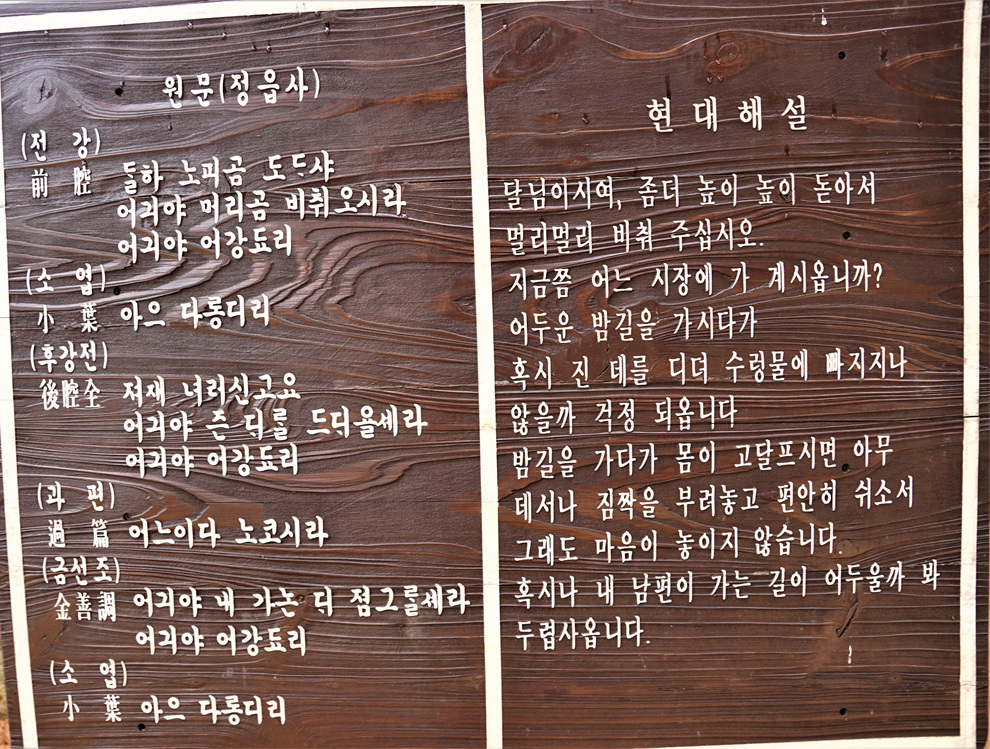 원문(정읍사)
(전 강)
前 腔 ᄃᆞᆯ하 노피곰 도ᄃᆞ샤
어긔야 머리곰 비취오시라
어긔야 어강됴리
(소 엽)
小 葉 아으 다롱디리
(후강전)
後腔全 져재 녀러신고요
어긔야 즌 ᄃᆡ를 드ᄃᆡ욜세라
어긔야 어강됴리
(과 편)
過 篇 어느이다 노코시라
(금선조)
金善調 어긔야 내 가논 ᄃᆡ 졈그를세라
어긔야 어강됴리
(소 엽)
小 葉 아으 다롱디리
현대해설
달님이시여, 좀더 높이 높이 돋아서
멀리멀리 비춰 주십시오.
지금쯤 어느 시장에 가 계시옵니까?
어두운 밤길을 가시다가
혹시 진 데를 디뎌 수렁물에 빠지지나
않을까 걱정 되옵니다
밤길을 가다가 몸이 고달프시면 아무
데서나 짐짝을 부려놓고 편안히 쉬소서
그래도 마음이 놓이지 않습니다.
혹시나 내 남편이 가는 길이 어두울까 봐
두렵사옵니다.